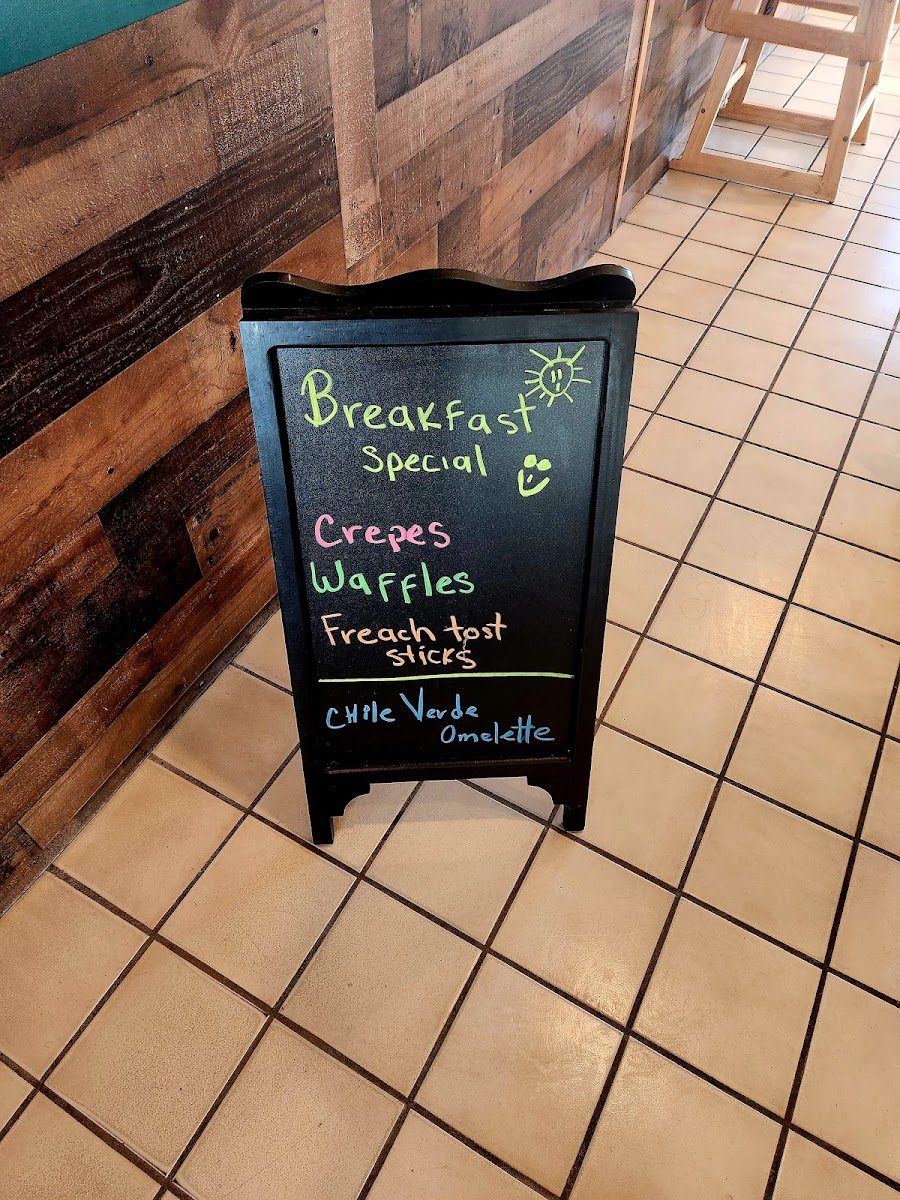 Breakfast
special
Crepes
Waffles
Freach tost
sticks
CHile Verde
Omelette